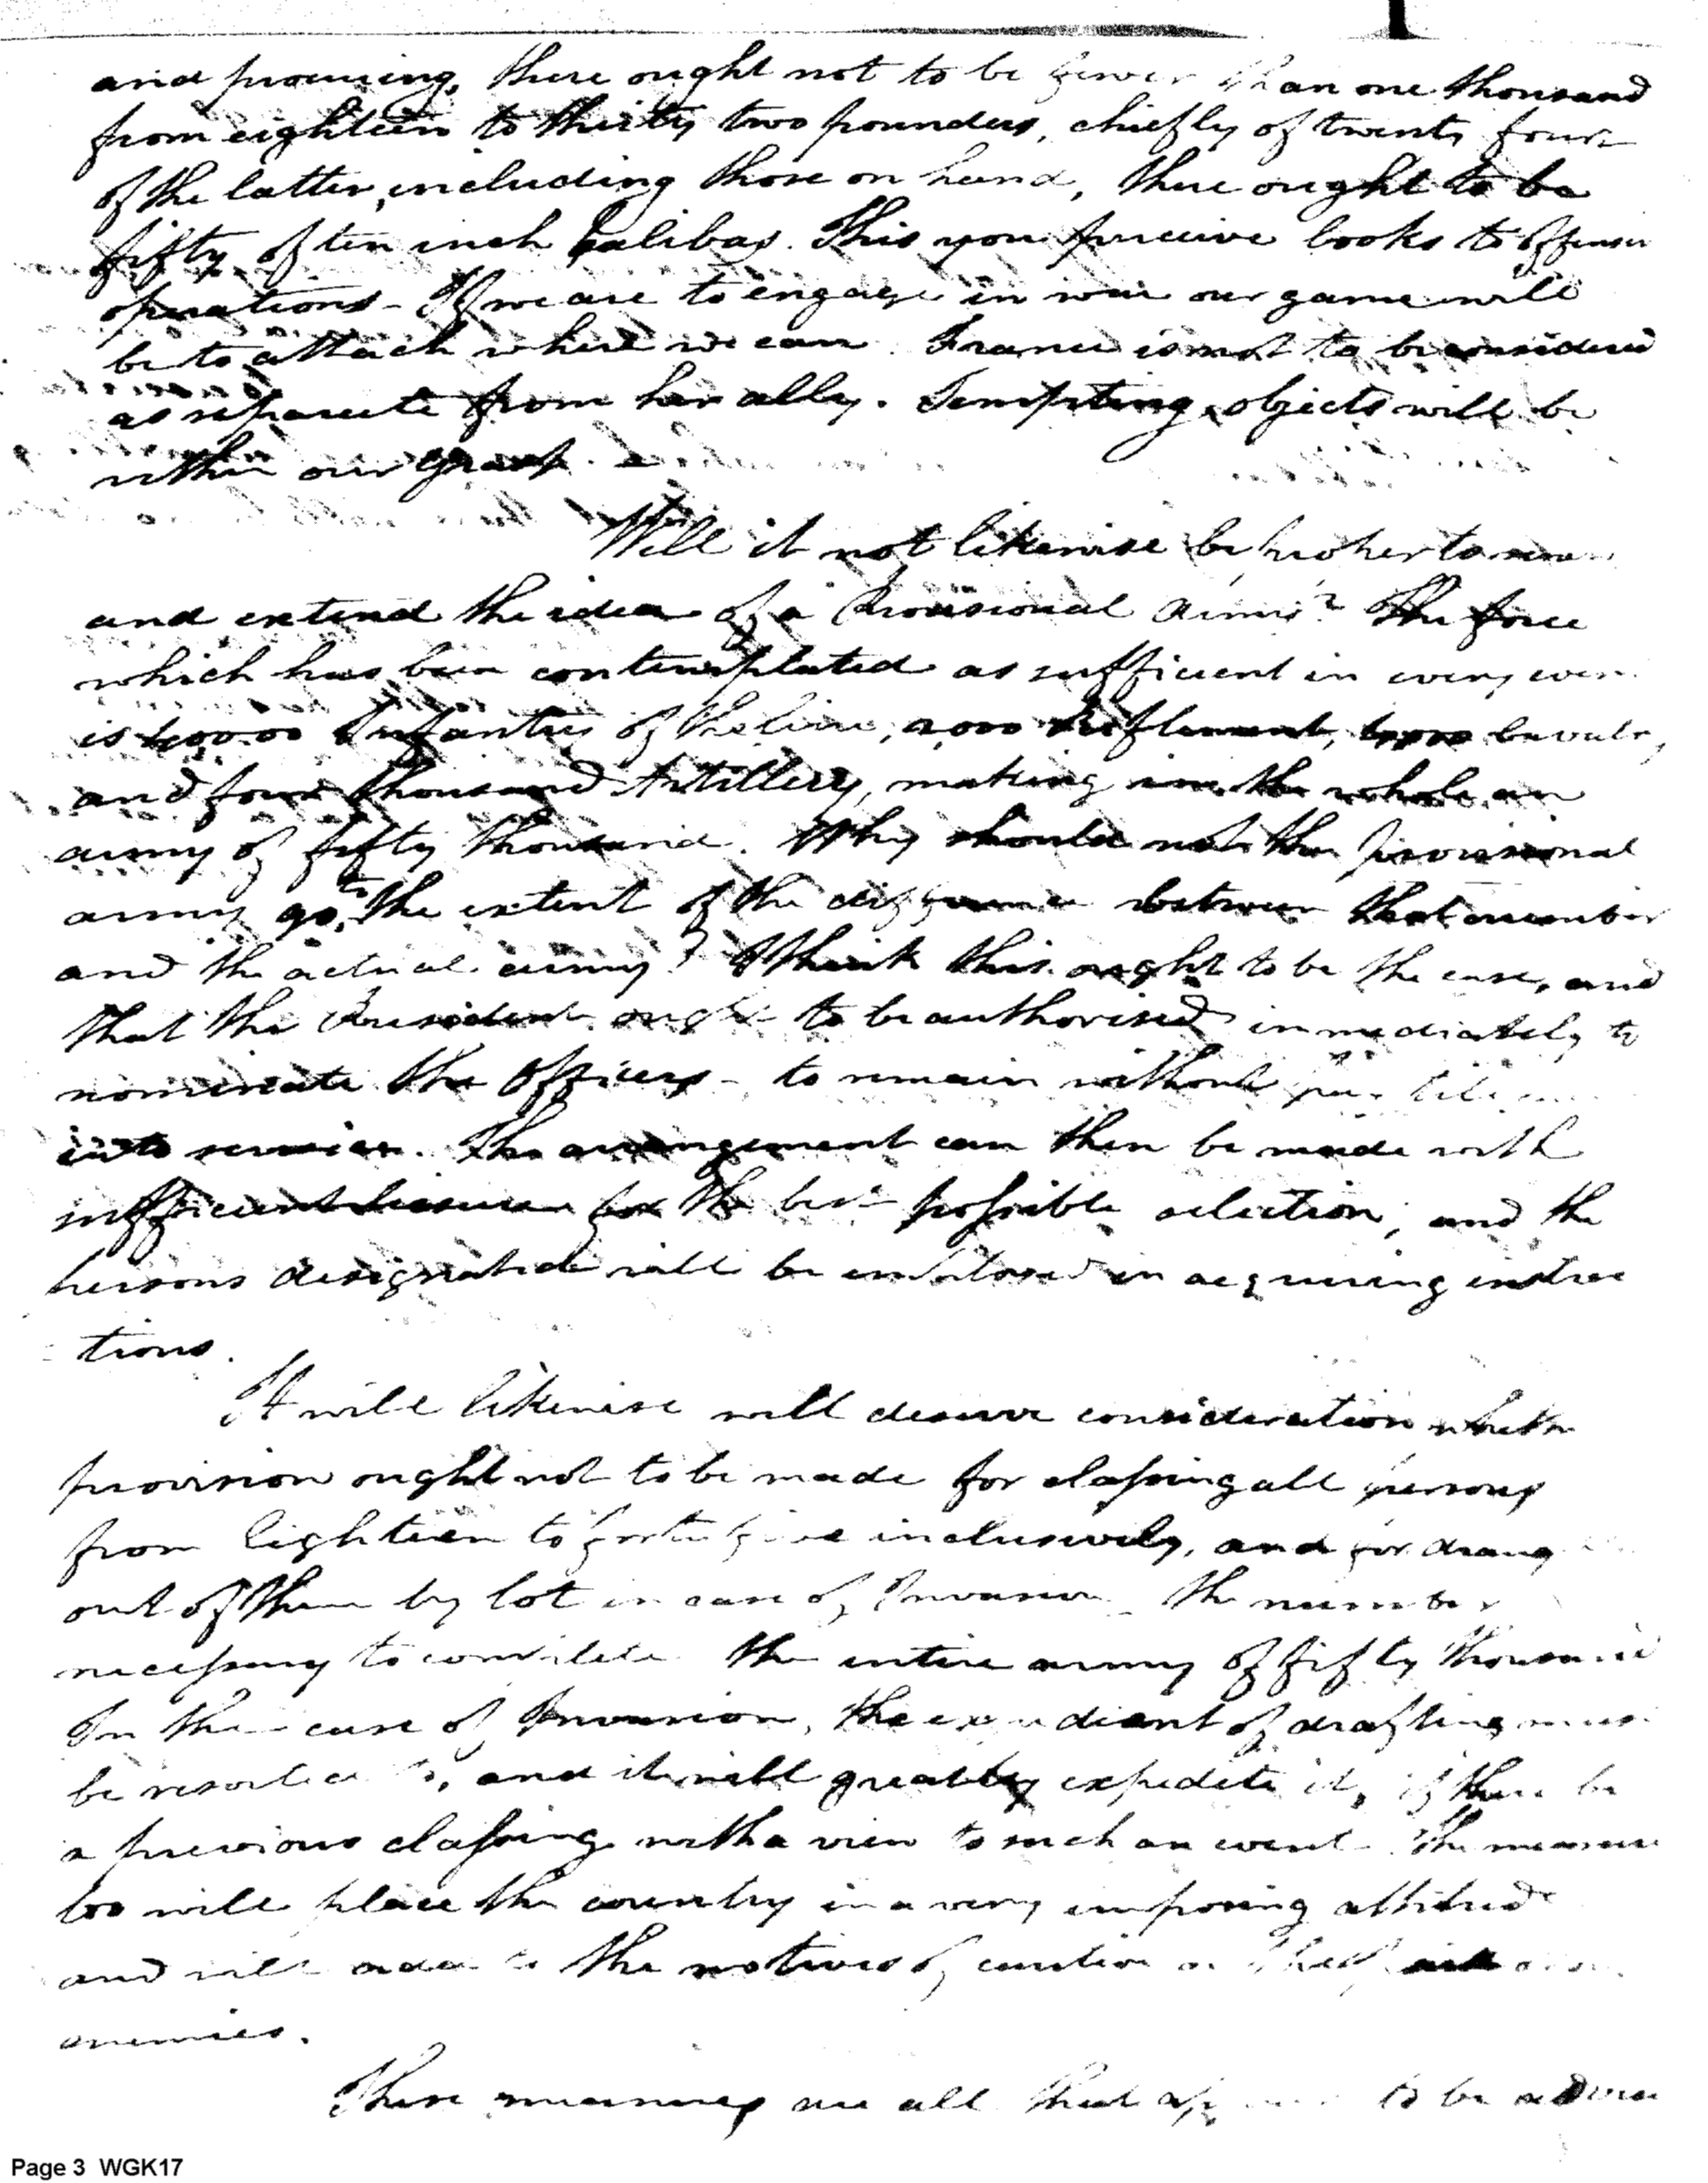 and procuring, there ought not to be fewer than one thousand
from eighteen to thirty two pounders, chiefly of twenty four
of the latter, including those on hand, there ought to be
fifty of ten inch Calibar. This you perceive looks to offensive
operations - If we are to engage in war our game will
be to attack where we can. France is not to be considered
as separate from her ally. Tempting objects will be
within our grasp.
Will it not likewise be proper to
and extend the idea of a Provisional Army? The force
which has been contemplated as sufficient in every even
is 40000 Infantry of the line, 2,000 Riflemen, Cavalry,
and four thousand Artillery, making in the whole an
army of fifty thousand. Why should not the provisional
army go to the extent of the difference between that number
and the actual army? I think this ought to be the case, and
that the President ought to be authorised immediately to
nominate the Officers - to remain without pay till
into service. The arrangement can then be made with
sufficient leisure for the best possible selection, and the
persons designated will be employed in acquiring instruc
tions.
It will likewise will deserve consideration whether
provision ought not to be made for classing all persons
from Eighteen to forty five inclusively, and for draug
out of them by lot in case of Invasion the number
necessary to complete the entire army of fifty thousand
In the case of Invasion, the expedient of drafting must
be resorted to, and it will greatly expedite it, if there be
a previous classing with a view to such an event - The measure
too will place the country in a very imposing attitude
and will add to the motives of caution
enemies.
These measures are all that appear to be
Page 3 WGK17